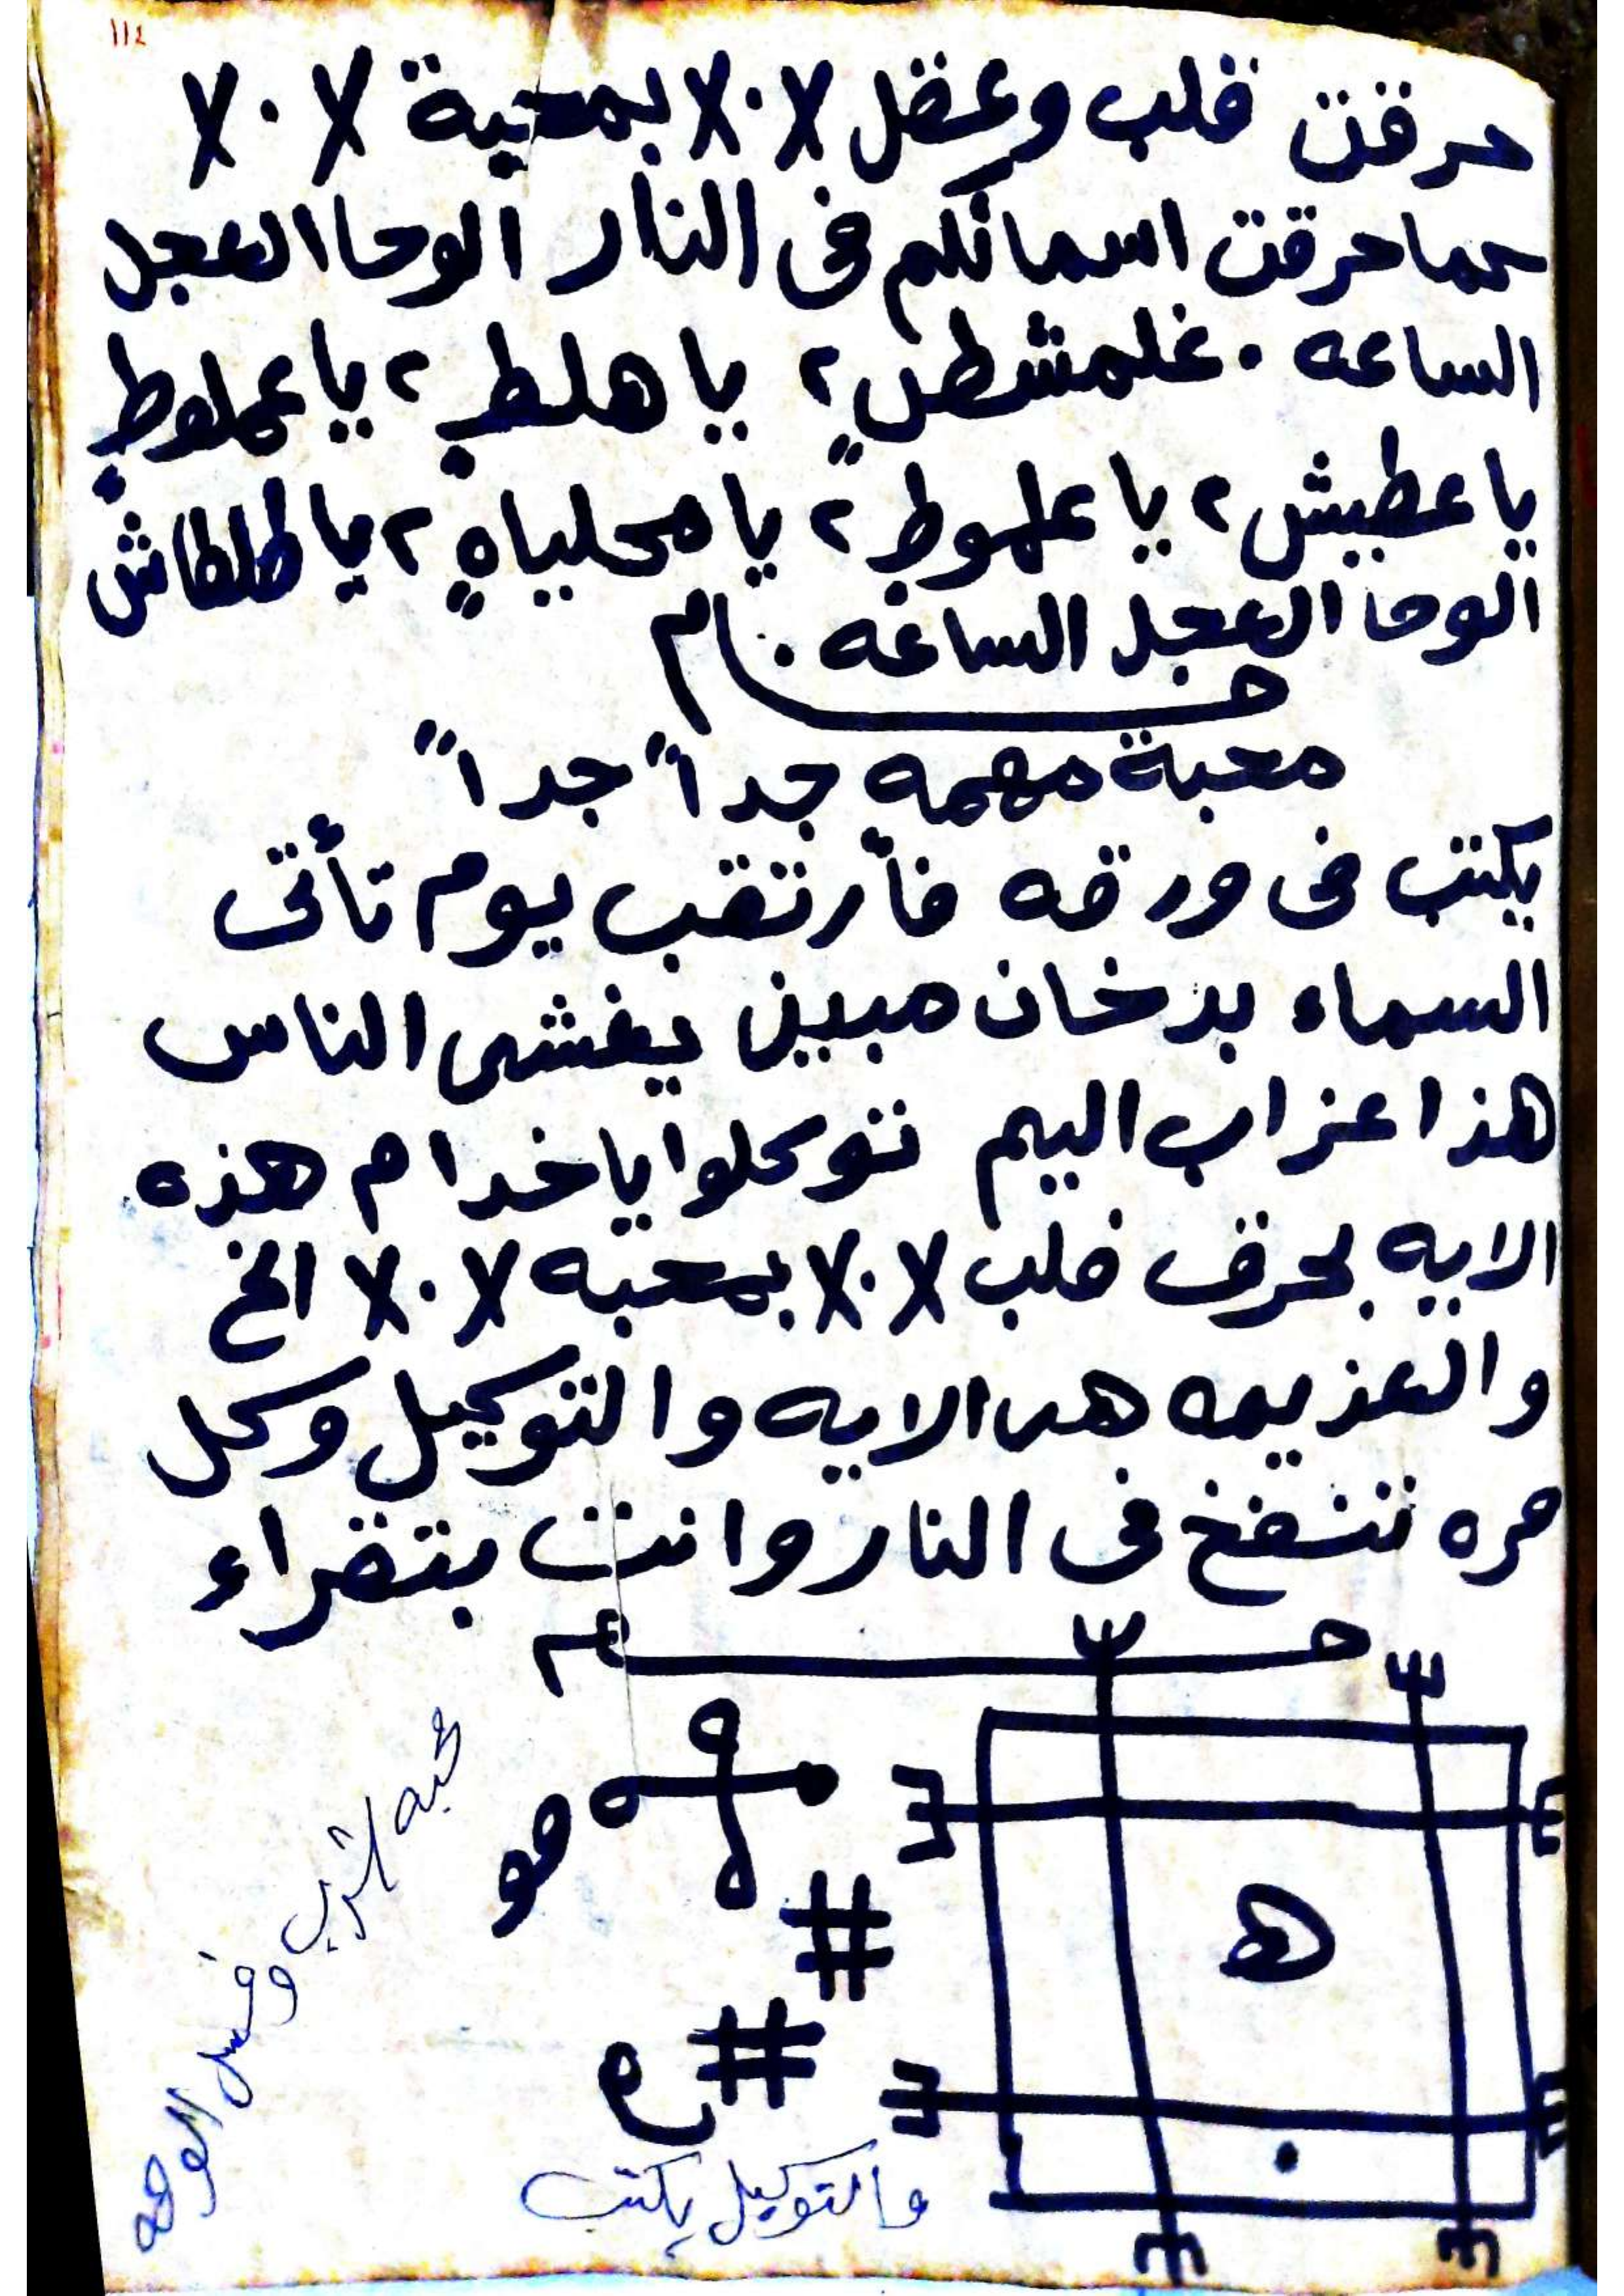 ١١٤
حرقت قلب وعقل X.X بمحبة X.X
كما حرقت اسمائكم فى النار الوحا العجل
الساعه . غلمشطش ٢ يا هلط ٢ يا عملوط
يا عطيش ٢ يا علموط ٢ يا محلياه ٢ يا طلطاش
الوحا العجل الساعه .
محبة مهمه جداً جداً
يكتب فى ورقه فأرتقب يوم تأتى
السماء بدخان مبين يغشى الناس
هذا عزاب اليم توكلوا يا خدام هذه
الايه بحرق قلب X.X بمحبه X.X الخ
والعزيمه هى الايه والتوكيل وكل
مره تنفخ فى النار وانت بتقراء
هـ
هو
# #
والتوكيل يكتب